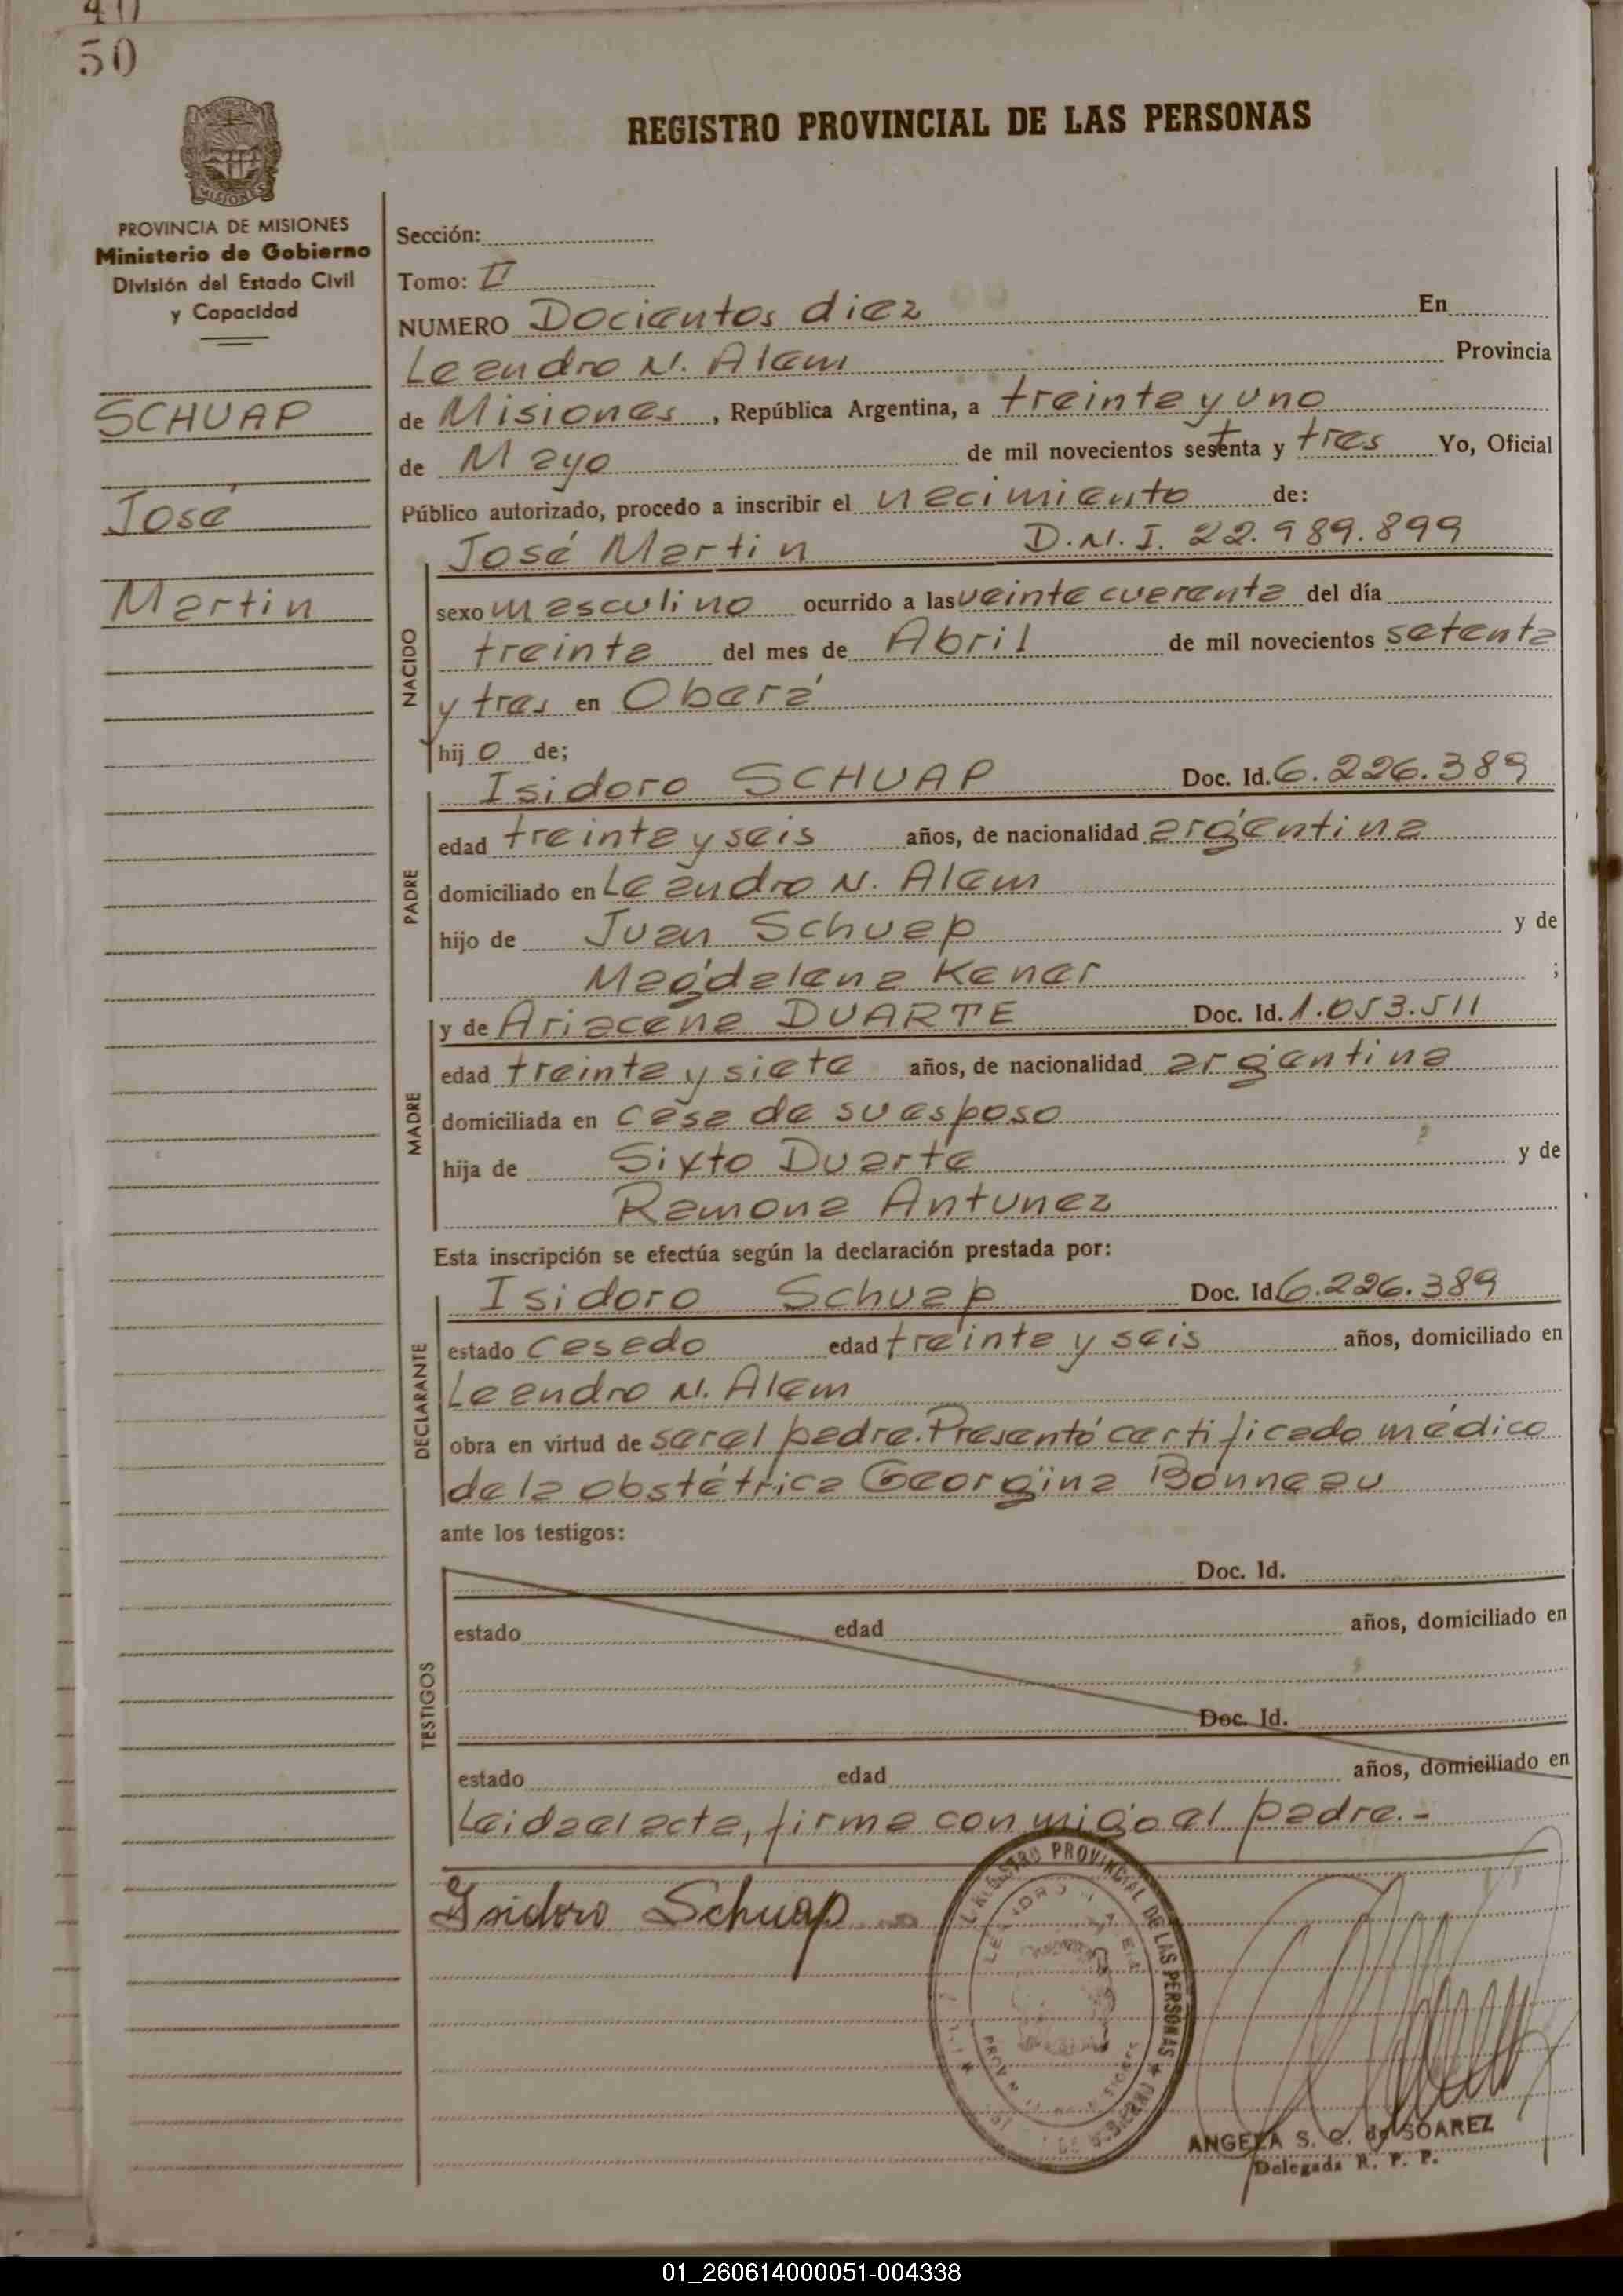 50
REGISTRO PROVINCIAL DE LAS PERSONAS
PROVINCIA DE MISIONES
Ministerio de Gobierno
División del Estado Civil
y Capacidad
SCHUAP
José
Martin
Sección:
Tomo: II
NUMERO Docientos diez En
Leandro N. Alem Provincia
de Misiones, República Argentina, a treinta y uno
de Mayo de mil novecientos setenta y tres Yo, Oficial
Público autorizado, procedo a inscribir el nacimiento de:
José Martin D.N.I. 22.989.899
NACIDO
sexo masculino ocurrido a las veinte cuarenta del día
treinta del mes de Abril de mil novecientos setenta
y tres en Oberá
hijo de;
PADRE
Isidoro SCHUAP Doc. Id. 6.226.389
edad treinta y seis años, de nacionalidad argentina
domiciliado en Leandro N. Alem
hijo de Juan Schuap y de
Magdalena Kener ;
MADRE
y de Ariacena DUARTE Doc. Id. 1.053.511
edad treinta y siete años, de nacionalidad argentina
domiciliada en casa de su esposo
hija de Sixto Duarte y de
Ramona Antunez
Esta inscripción se efectúa según la declaración prestada por:
DECLARANTE
Isidoro Schuap Doc. Id. 6.226.389
estado casado edad treinta y seis años, domiciliado en
Leandro N. Alem
obra en virtud de ser el padre. Presentó certificado médico
de la obstétrica Georgina Bonneau
ante los testigos:
TESTIGOS
Doc. Id.
estado edad años, domiciliado en
Doc. Id.
estado edad años, domiciliado en
Leida el acta, firma conmigo el padre.-
Isidoro Schuap
REGISTRO PROVINCIAL DE LAS PERSONAS
ANGELA S. C. de SOAREZ
Delegada R. P. P.
01_260614000051-004338